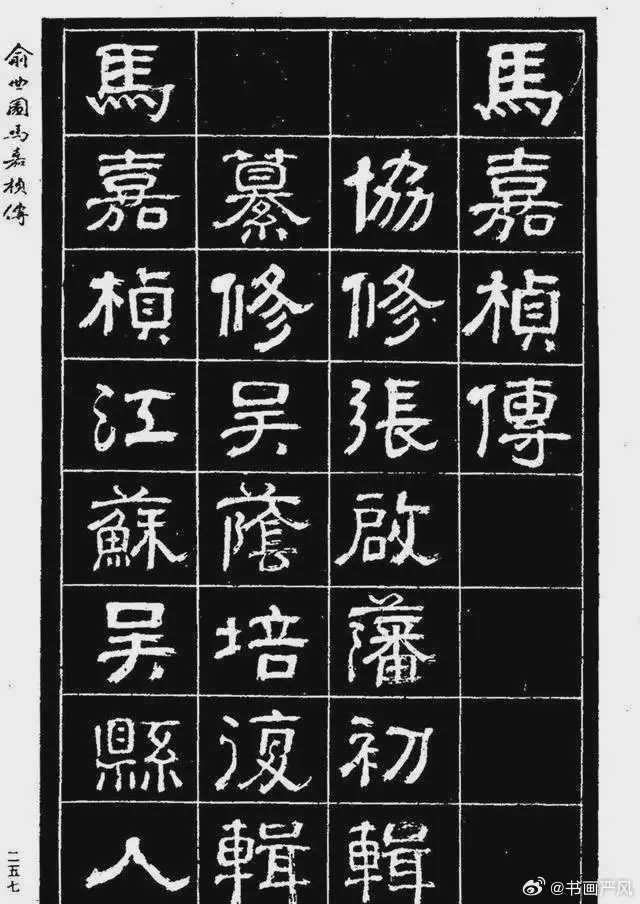 馬嘉楨傳
協修張啟藩初輯
纂修吴蔭培復輯
馬嘉楨江蘇吴縣人
俞曲園馬嘉楨傳
二五七
@书画严风